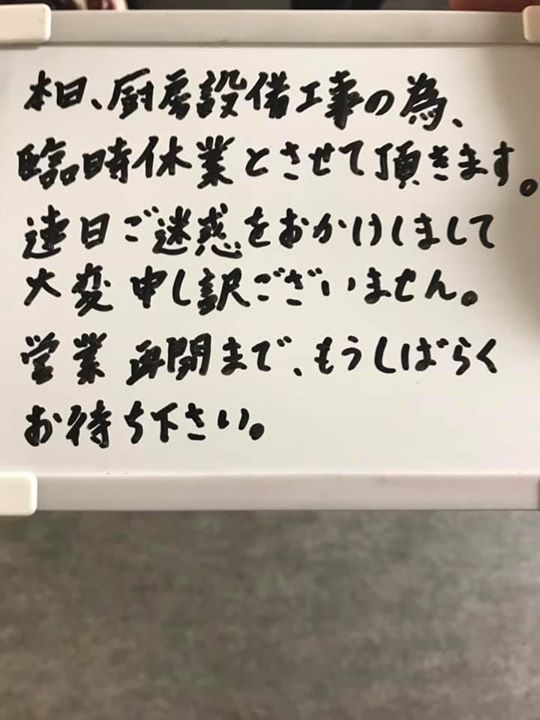 本日、厨房設備工事の為、
臨時休業とさせて頂きます。
連日ご迷惑をおかけしまして
大変申し訳ございません。
営業再開まで、もうしばらく
お待ち下さい。